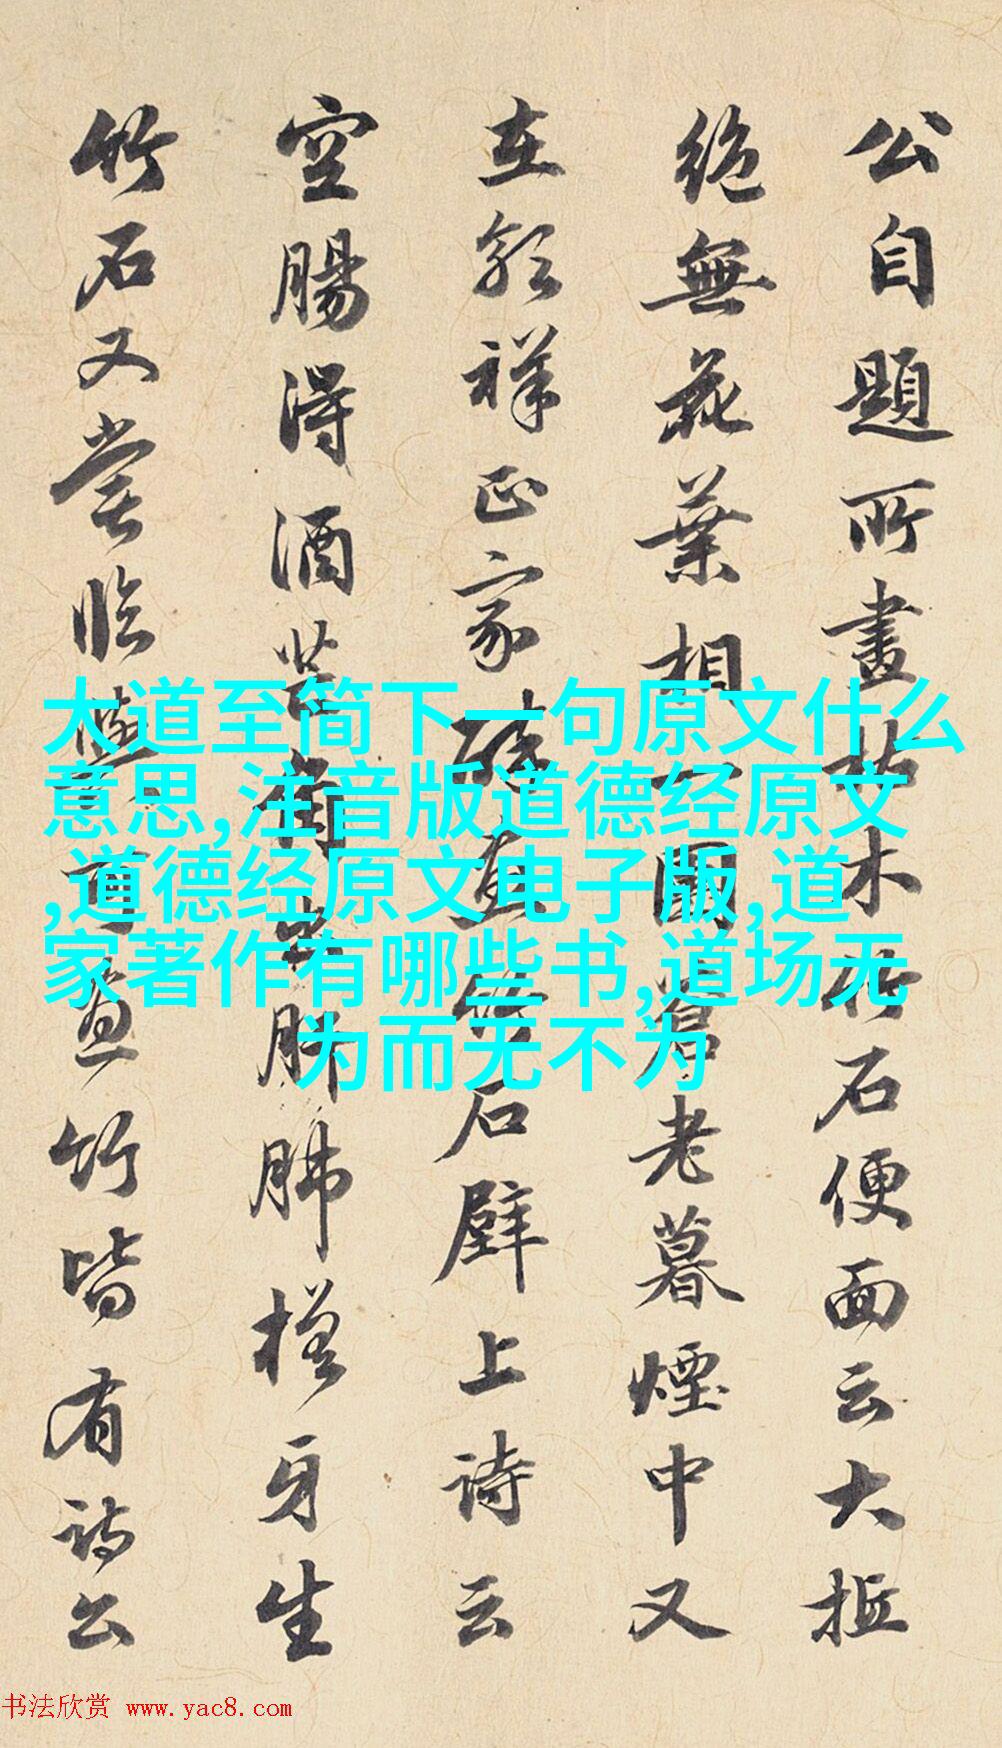 公自題所畫枯木竹石便面云大抵
絶無花葉相一團蒼老暮煙中又
在郭祥正家醉畫竹石壁上詩云
空腸得酒芒角出肺肺槎牙生
竹石又嘗臨與可畫竹皆有詩公
大道至简下一句原文什么
意思,注音版道德经原文
,道德经原文电子版,道
家著作有哪些书,道场无
为而无不为
书法欣赏 www.yac8.com